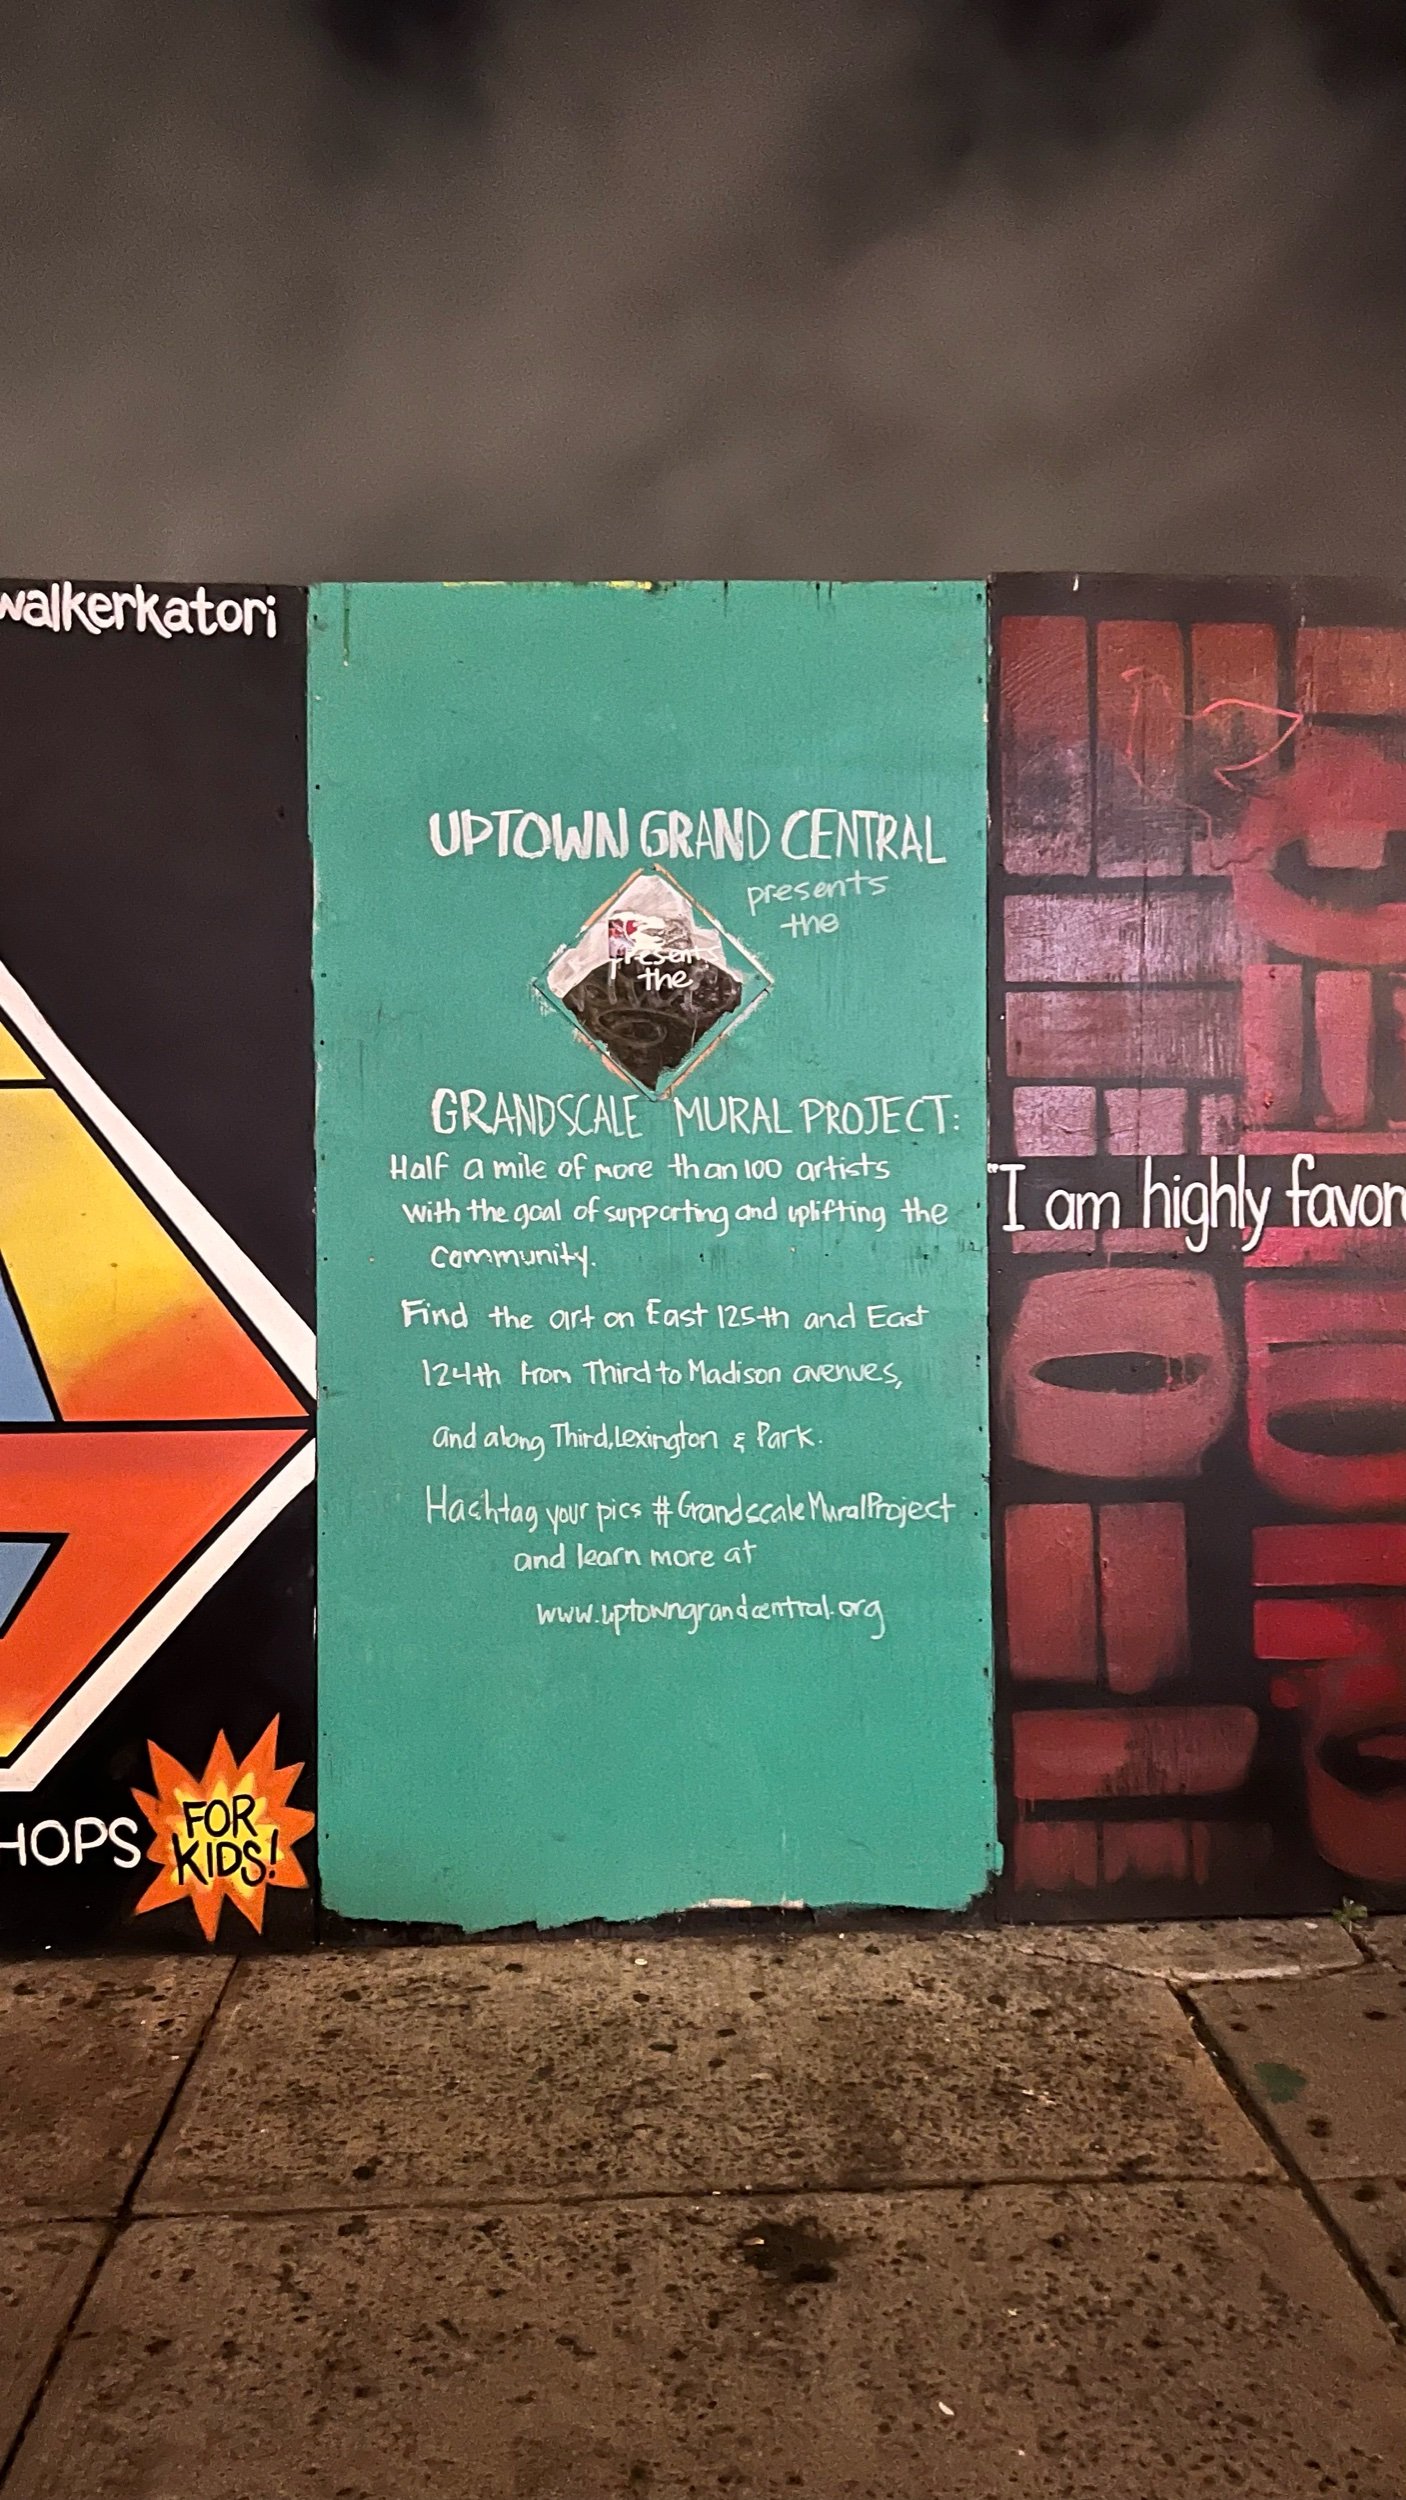 walkerkatori
UPTOWN GRAND CENTRAL
presents
the
present
the
GRANDSCALE MURAL PROJECT:
Half a mile of more than 100 artists
with the goal of supporting and uplifting the
community.
Find the art on East 125th and East
124th from Third to Madison avenues,
and along Third, Lexington & Park.
Hashtag your pics #GrandscaleMuralProject
and learn more at
www.uptowngrandcentral.org
"I am highly favor
HOPS
FOR
KIDS!